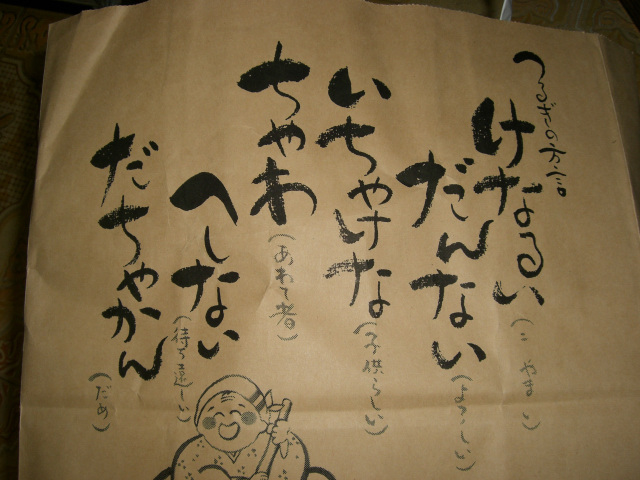 つるぎの方言
けなるい
だんない(よろしい)
いちゃけな(子供らしい)
ちゃわ(あわて者)
へしない(待ち遠しい)
だちゃかん(だめ)